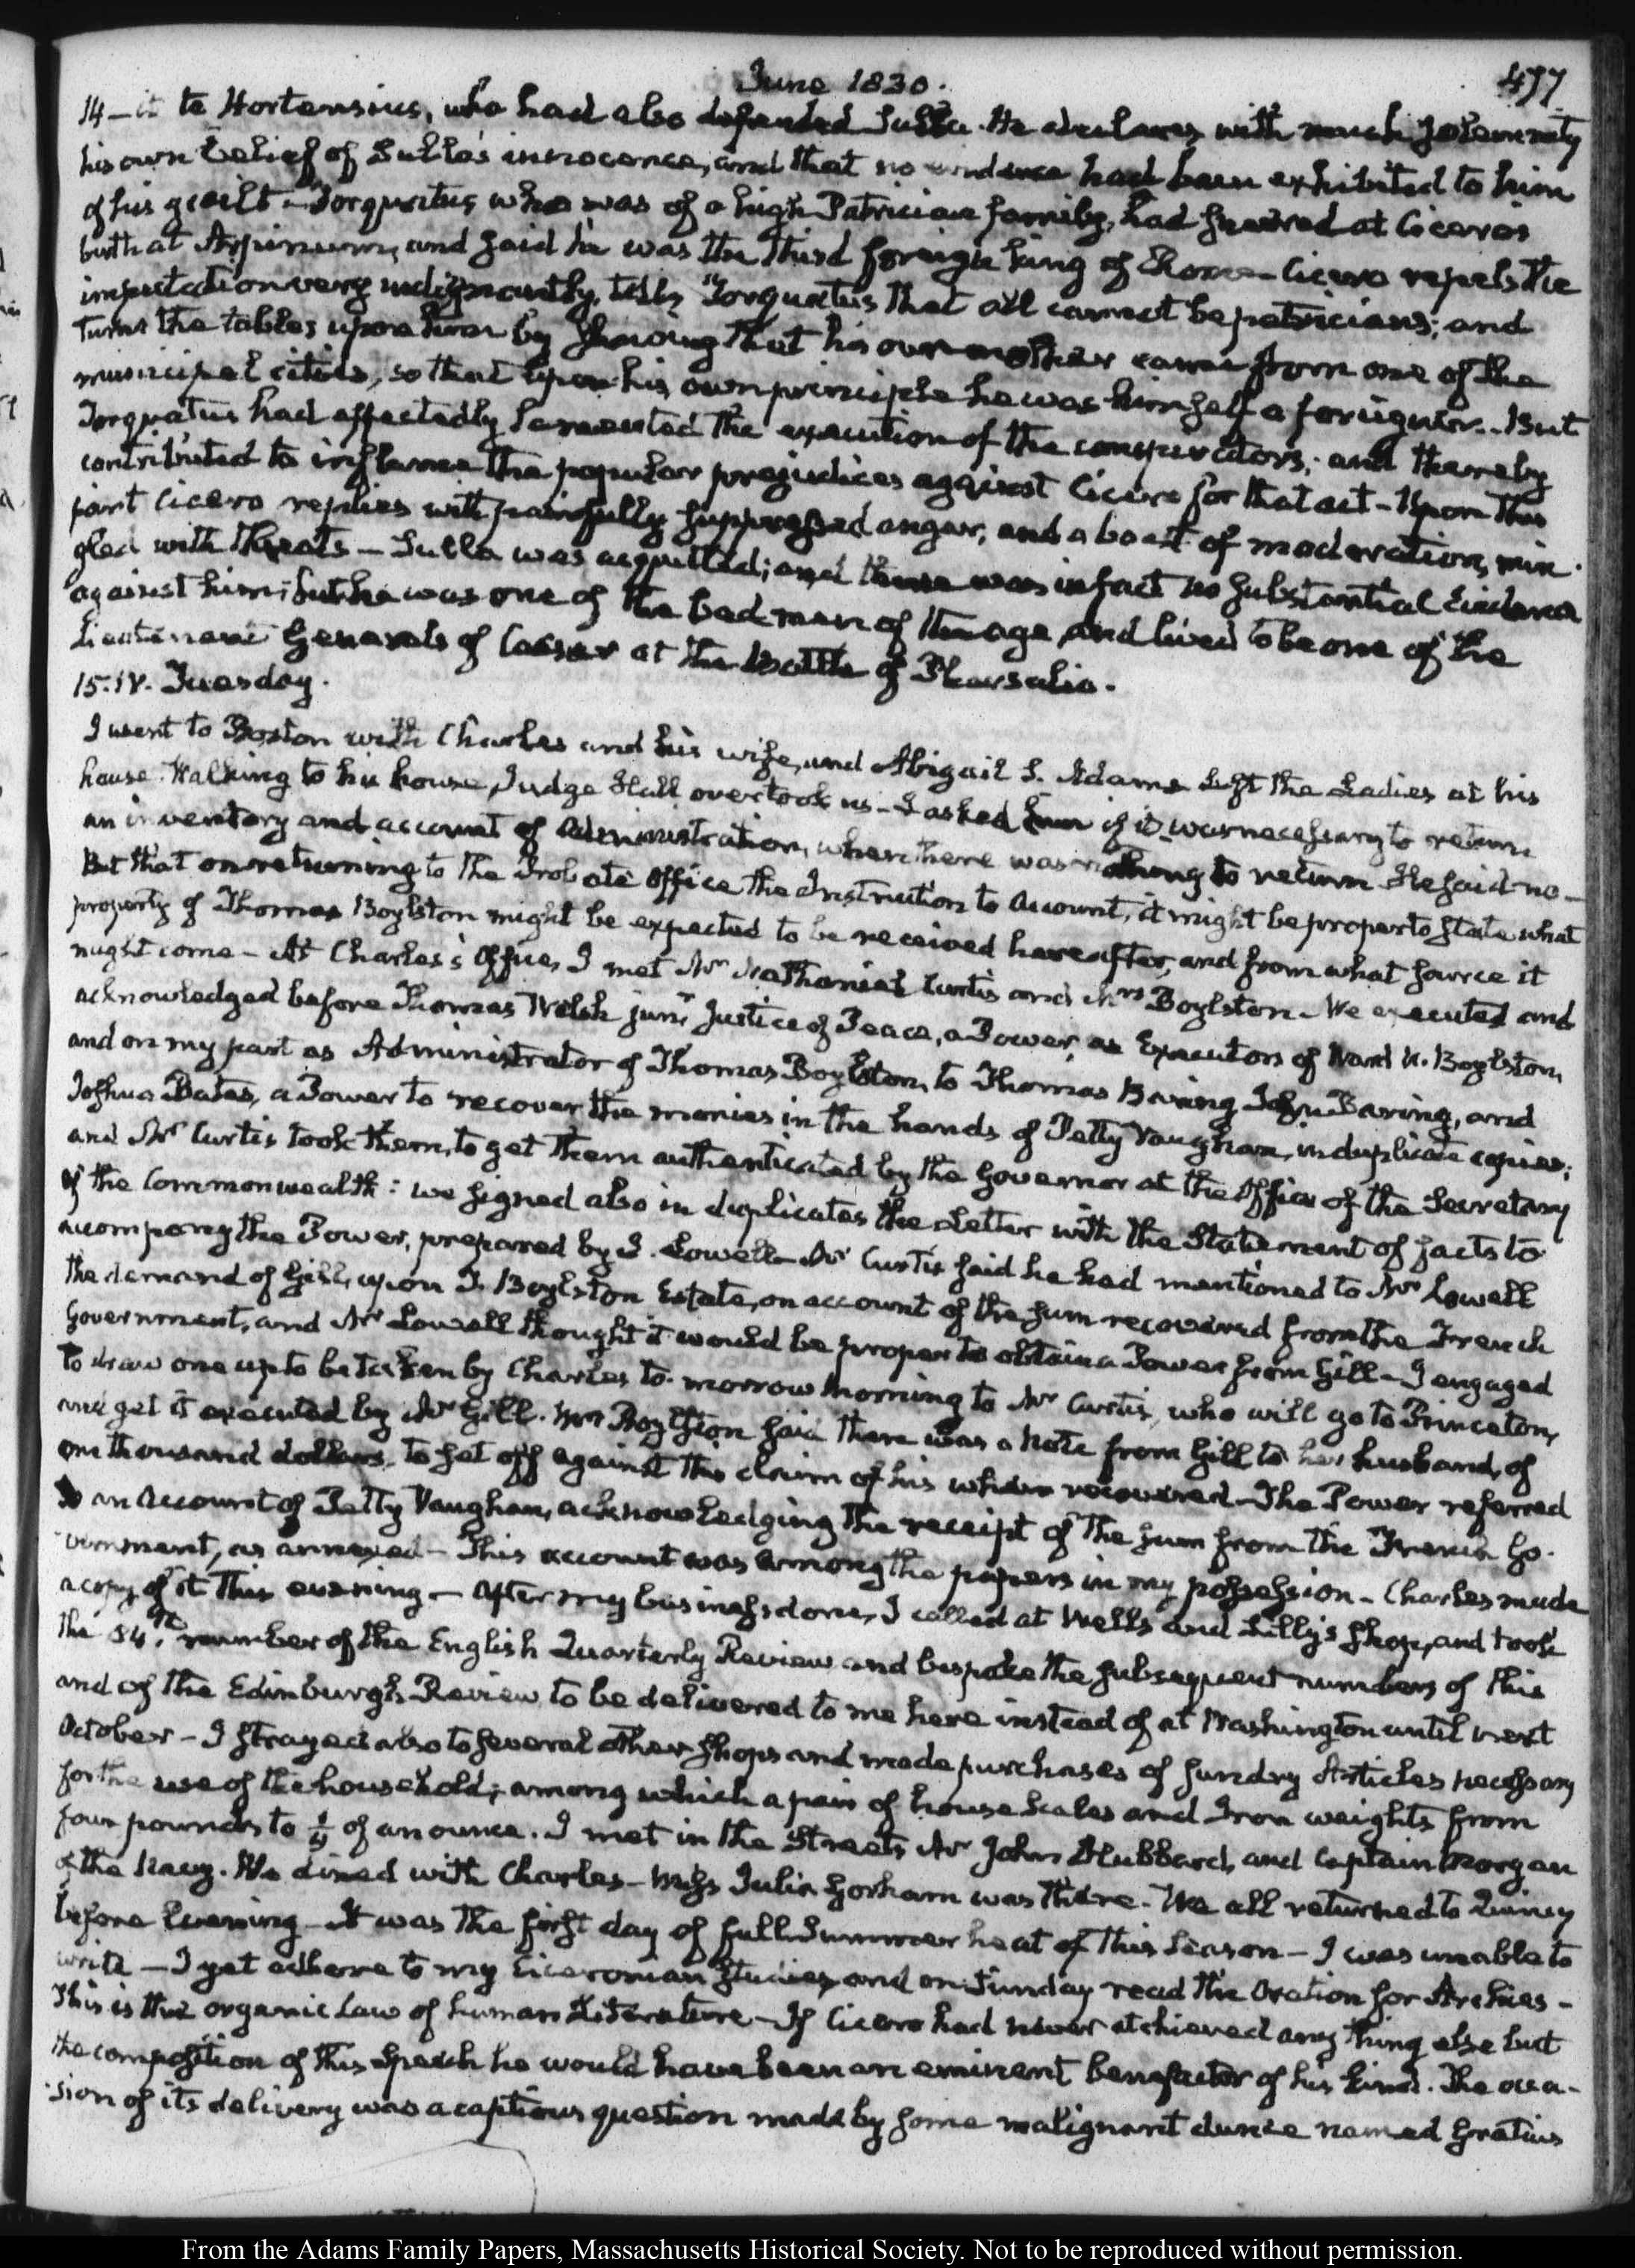 June 1830.
477
14 — it to Hortensius, who had also defended Sulla. He declares with much solemnity
his own belief of Sulla's innocence, and that no evidence had been exhibited to him
of his guilt — Torquatus, who was of a high Patrician family, had sneered at Cicero's
birth at Arpinum, and said he was the third foreign king of Rome — Cicero repels the
imputation very indignantly, tells Torquatus that all cannot be patricians; and
turns the tables upon him by shewing that his own mother came from one of the
municipal cities, so that upon his own principle he was himself a foreigner. But
Torquatus had affectedly lamented the execution of the conspirators; and thereby
contributed to inflame the popular prejudices against Cicero for that act — Upon this
part Cicero replies with painfully suppressed anger, and a boast of moderation, min-
gled with threats — Sulla was acquitted; and there was in fact no substantial evidence
against him; but he was one of the bad men of the age, and lived to be one of the
Lieutenant Generals of Caesar at the Battle of Pharsalia.
15. IV. Tuesday.
I went to Boston with Charles and his wife, and Abigail S. Adams. Left the Ladies at his
house. Walking to his house, Judge Hall overtook us — I asked him if it was necessary to return
an inventory and account of Administration, when there was nothing to return. He said no —
But that on returning to the Probate Office the Instruction to Account, it might be proper to state what
property of Thomas Boylston might be expected to be received hereafter, and from what source it
might come — At Charles's Office, I met Mr. Nathaniel Curtis and Mrs. Boylston — We executed and
acknowledged before Thomas Welsh junr. Justice of Peace, a Power, as Executors of Ward N. Boylston,
and on my part as Administrator of Thomas Boylston, to Thomas Baring, John Baring, and
Joshua Bates, a Power to recover the monies in the hands of Petty Vaughan, in duplicate copies;
and Mr. Curtis took them, to get them authenticated by the Governor at the Office of the Secretary
of the Commonwealth: we signed also in duplicates the Letter with the Statement of facts to
accompany the Power, prepared by J. Lowell — Mr. Curtis said he had mentioned to Mr. Lowell
the demand of Gill, upon T. Boylston Estate, on account of the sum recovered from the French
Government, and Mr. Lowell thought it would be proper to obtain a Power from Gill — I engaged
to draw one up to be taken by Charles to-morrow Morning to Mr. Curtis, who will go to Princeton,
and get it executed by Mr. Gill. Mrs. Boylston said there was a Note from Gill to her husband, of
one thousand dollars, to set off against this claim of his when recovered — The Power referred
to an Account of Petty Vaughan, acknowledging the receipt of the sum from the French Go-
vernment, as annexed — This account was among the papers in my possession — Charles made
a copy of it this evening — After my business done, I called at Wells and Lilly's shop, and took
the 84th. number of the English Quarterly Review and bespoke the subsequent numbers of this
and of the Edinburgh Review to be delivered to me here instead of at Washington until next
October — I strayed also to several other shops and made purchases of sundry Articles necessary
for the use of the household; among which a pair of house scales and Iron weights from
four pounds to ¼ of an ounce. I met in the Streets Mr. John Hubbard, and Captain Morgan
of the Navy. We dined with Charles — Miss Julia Gorham was there. We all returned to Quincy
before Evening — It was the first day of full Summer heat of this Season — I was unable to
write — I yet adhere to my Ciceronian Studies, and on Sunday read the Oration for Archias —
This is the organic Law of human Literature — If Cicero had never atchieved any thing else but
the composition of this Speech he would have been an eminent benefactor of his kind. The occa-
sion of its delivery was a captious question made by some malignant dunce named Gratius
From the Adams Family Papers, Massachusetts Historical Society. Not to be reproduced without permission.